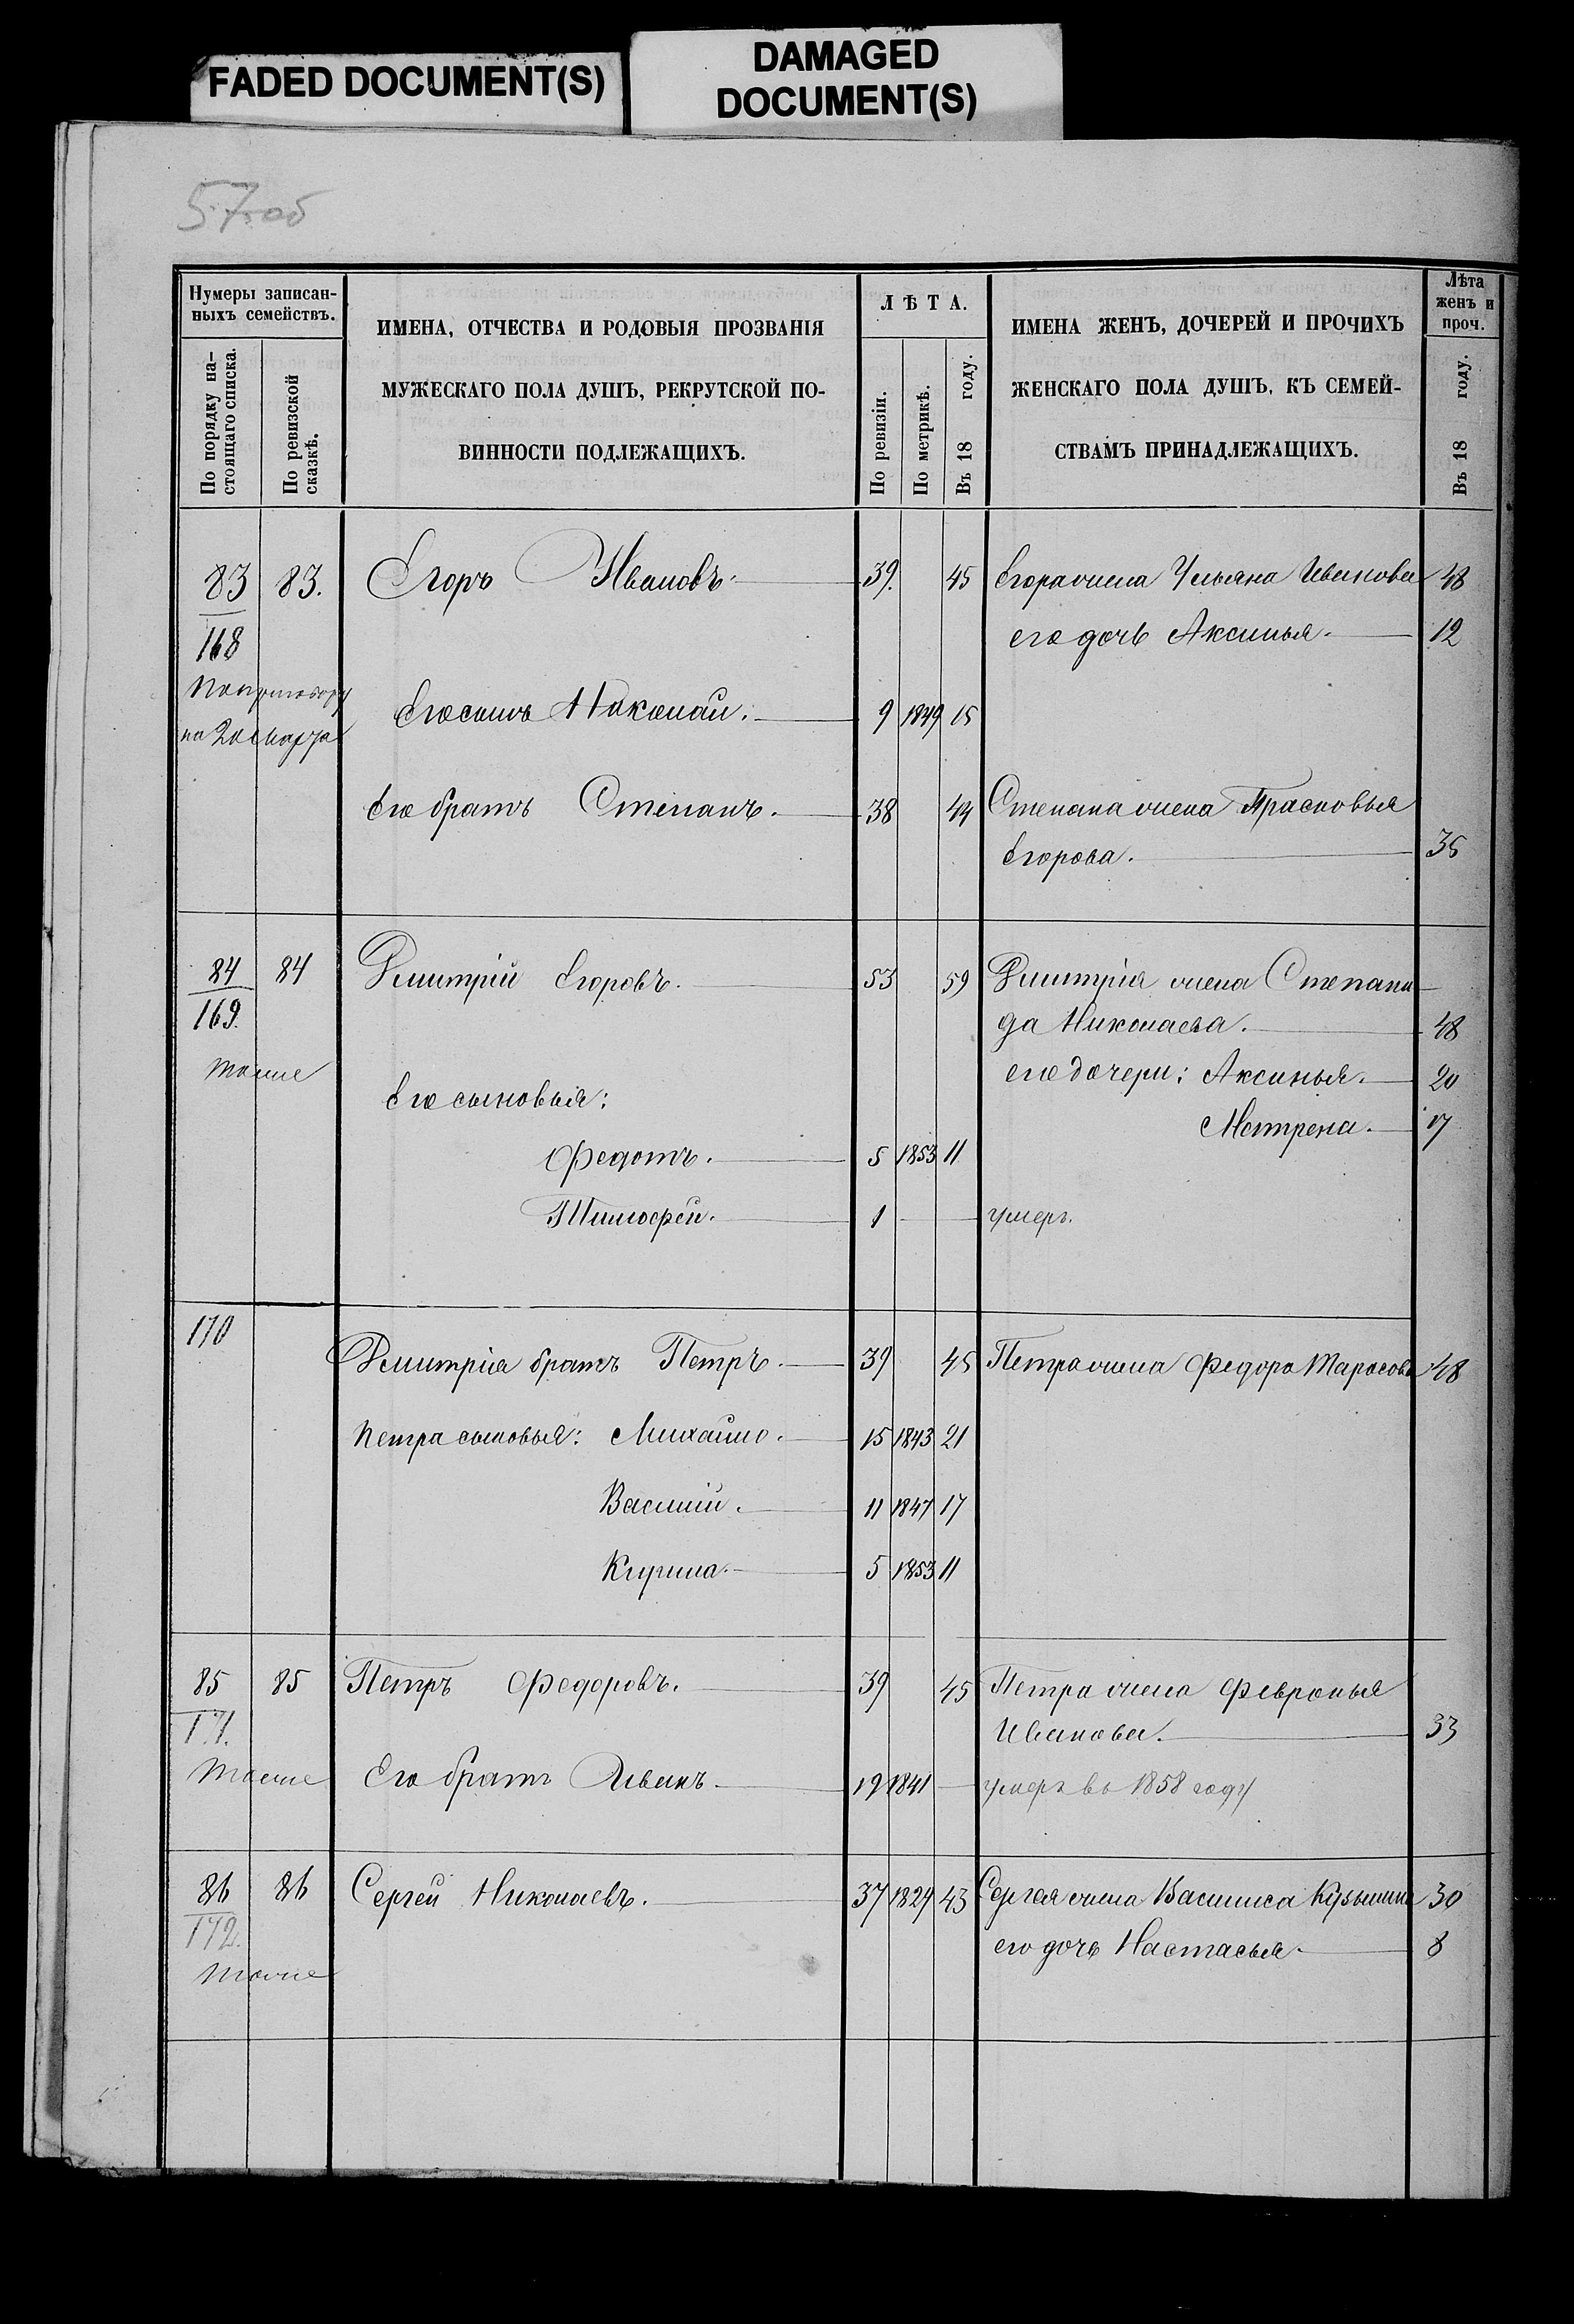 FADED DOCUMENT(S)
DAMAGED
DOCUMENT(S)
57об
Нумеры записан-
ныхъ семействъ.
По порядку на-
стоящаго списка.
По ревизской
сказкѣ.
ИМЕНА, ОТЧЕСТВА И РОДОВЫЯ ПРОЗВАНІЯ
МУЖЕСКАГО ПОЛА ДУШЪ, РЕКРУТСКОЙ ПО-
ВИННОСТИ ПОДЛЕЖАЩИХЪ.
ЛѢТА.
По ревизіи.
По метрикѣ.
Въ 18 году.
ИМЕНА ЖЕНЪ, ДОЧЕРЕЙ И ПРОЧИХЪ
ЖЕНСКАГО ПОЛА ДУШЪ, КЪ СЕМЕЙ-
СТВАМЪ ПРИНАДЛЕЖАЩИХЪ.
Лѣта
женъ и
проч.
Въ 18 году.
83 83. Егоръ Ивановъ. 39. 45 Егора жена Ульяна Иванова 48
168 его дочь Аксинья. 12
По приговору
на 20е марта
Его сынъ Николай. 9 1849 15
Его братъ Степанъ. 38 44 Степана жена Прасковья
Егорова. 35
84 84 Дмитрій Егоровъ. 53 59 Дмитрія жена Степани
169. да Николаева. 48
тоже его дочери: Аксинья. 20
Его сыновья: Матрена. 17
Федотъ. 5 1853 11
Тимофей. 1 умеръ.
170 Дмитрія братъ Петръ. 39 45 Петра жена Федора Тарасова 48
Петра сыновья: Михайло. 15 1843 21
Василій. 11 1847 17
Кирила. 5 1853 11
85 85 Петръ Федоровъ. 39 45 Петра жена Февронья
171. Иванова. 33
тоже Его братъ Иванъ 19 1841 умеръ въ 1858 году
86 86 Сергей Николаевъ. 37 1824 43 Сергея жена Василиса Кузьмина 30
172. его дочь Настасья. 8
тоже